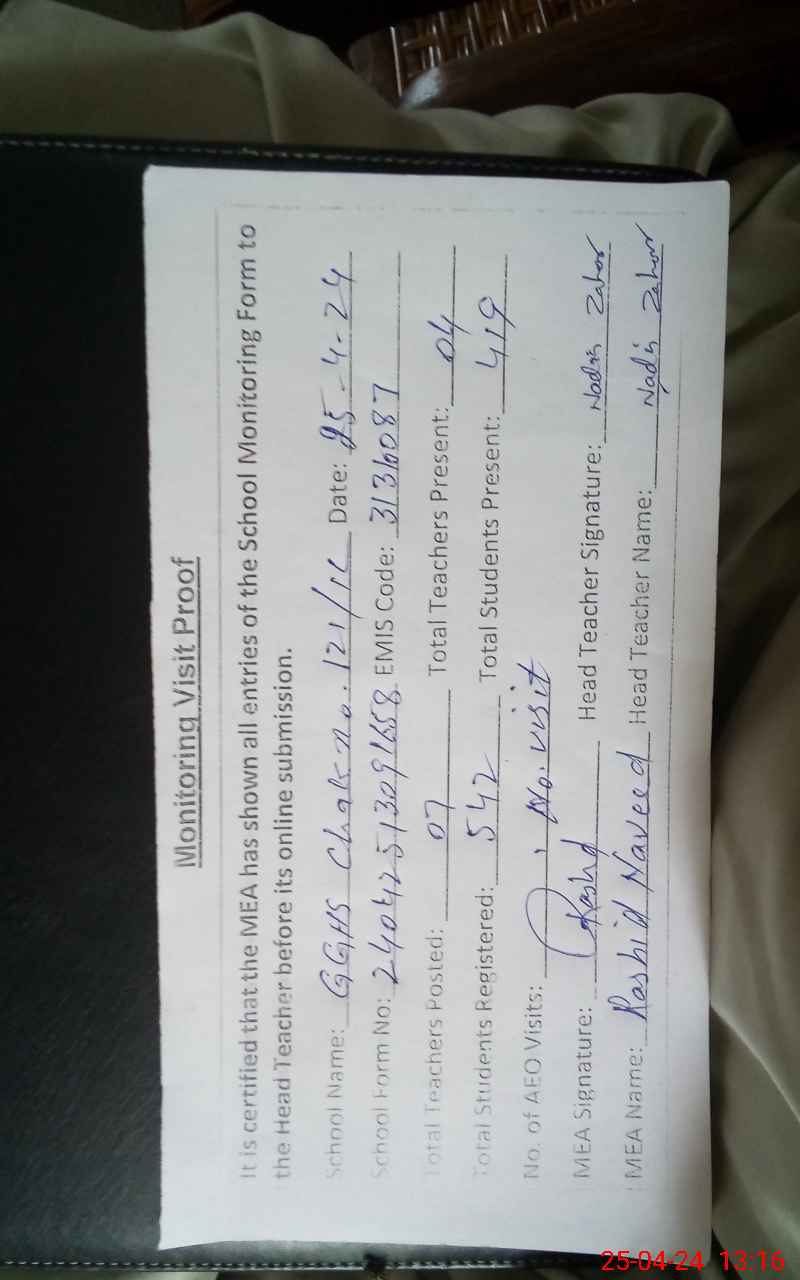 Monitoring Visit Proof
It is certified that the MEA has shown all entries of the School Monitoring Form to
the Head Teacher before its online submission.
School Name: GGHS Chak no. 121/1L Date: 25-4-24
School Form No: 24042513091658 EMIS Code: 31316087
Total Teachers Posted: 07 Total Teachers Present: 04
Total Students Registered: 542 Total Students Present: 419
No. of AEO Visits: No. visit
MEA Signature: Rashd Head Teacher Signature: Zahoor
MEA Name: Rashid Naveed Head Teacher Name: Zahoor
25-04-24 13:16